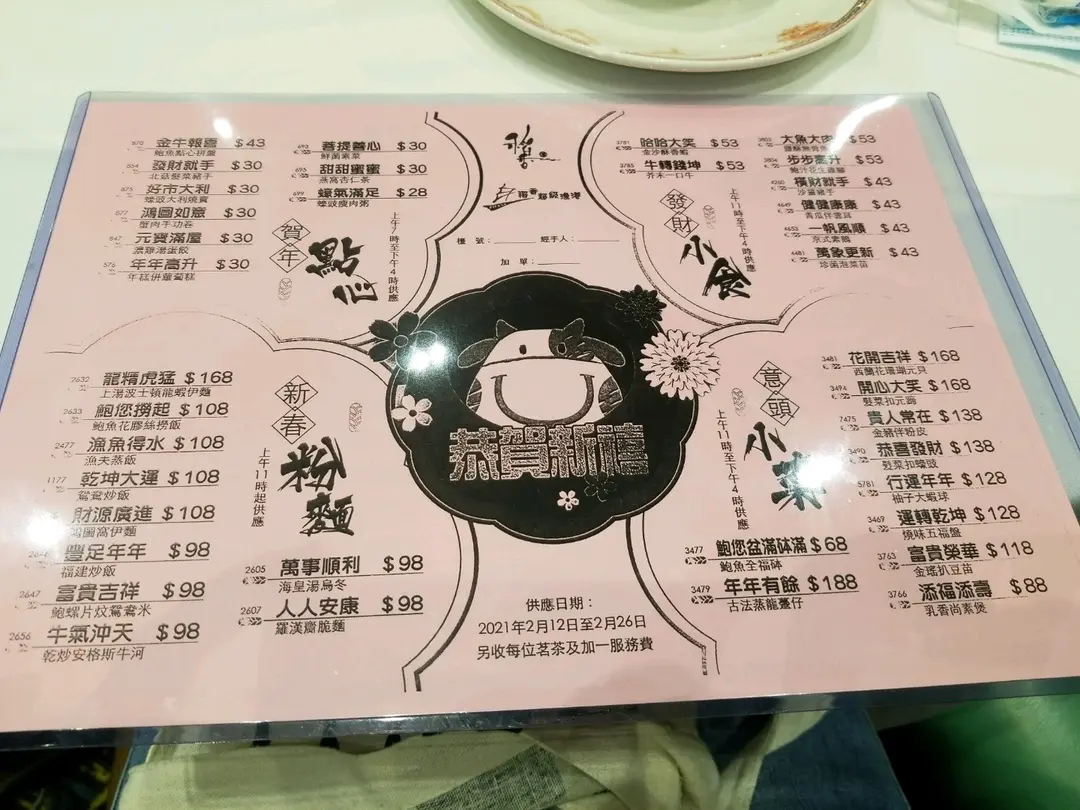 金牛報喜 $43
鮑魚點心拼盤
發財就手 $30
北菇髮菜豬手
好市大利 $30
蠔豉大利燒賣
鴻圖如意 $30
蟹肉手功卷
元寶滿屋 $30
濃雞湯蛋餃
年年高升 $30
年糕拼蘿蔔糕
菩提善心 $30
鮮菌素菜
甜甜蜜蜜 $30
燕窩杏仁茶
蠔氣滿足 $28
蠔豉瘦肉粥
賀年
點心
上午7時至下午4時供應
檯號：
經手人：
加單：
哈哈大笑 $53
金沙酥香蝦
3785 牛轉錢坤 $53
芥末一口牛
大魚大肉 $53
步步高升 $53
鮑汁花生雞腳
橫財就手 $43
沙薑豬手
健健康康 $43
青瓜伴雲耳
一帆風順 $43
京式素鵝
4481 萬象更新 $43
珍菌泡菜苗
發財
小食
上午11時至下午4時供應
2632 龍精虎猛 $168
上湯波士頓龍蝦伊麵
2633 鮑您撈起 $108
鮑魚花膠絲撈飯
2477 漁魚得水 $108
漁夫蒸飯
1177 乾坤大運 $108
鴛鴦炒飯
財源廣進 $108
鴻圖窩伊麵
豐足年年 $98
福建炒飯
2647 富貴吉祥 $98
鮑螺片炆鴛鴦米
2656 牛氣沖天 $98
乾炒安格斯牛河
2605 萬事順利 $98
海皇湯烏冬
2607 人人安康 $98
羅漢齋脆麵
新春
粉麵
上午11時起供應
恭賀新禧
供應日期：
2021年2月12日至2月26日
另收每位茗茶及加一服務費
意頭
小菜
上午11時至下午4時供應
3481 花開吉祥 $168
西蘭花環瑚元貝
3494 開心大笑 $168
髮菜扣元蹄
7475 貴人常在 $138
金豬伴粉皮
3490 恭喜發財 $138
髮菜扣蠔豉
5781 行運年年 $128
柚子大蝦球
3469 運轉乾坤 $128
燒味五福盤
3763 富貴榮華 $118
金瑤扒豆苗
3766 添福添壽 $88
乳香尚素煲
3477 鮑您盆滿砵滿 $68
鮑魚全福砵
3479 年年有餘 $188
古法蒸龍躉仔